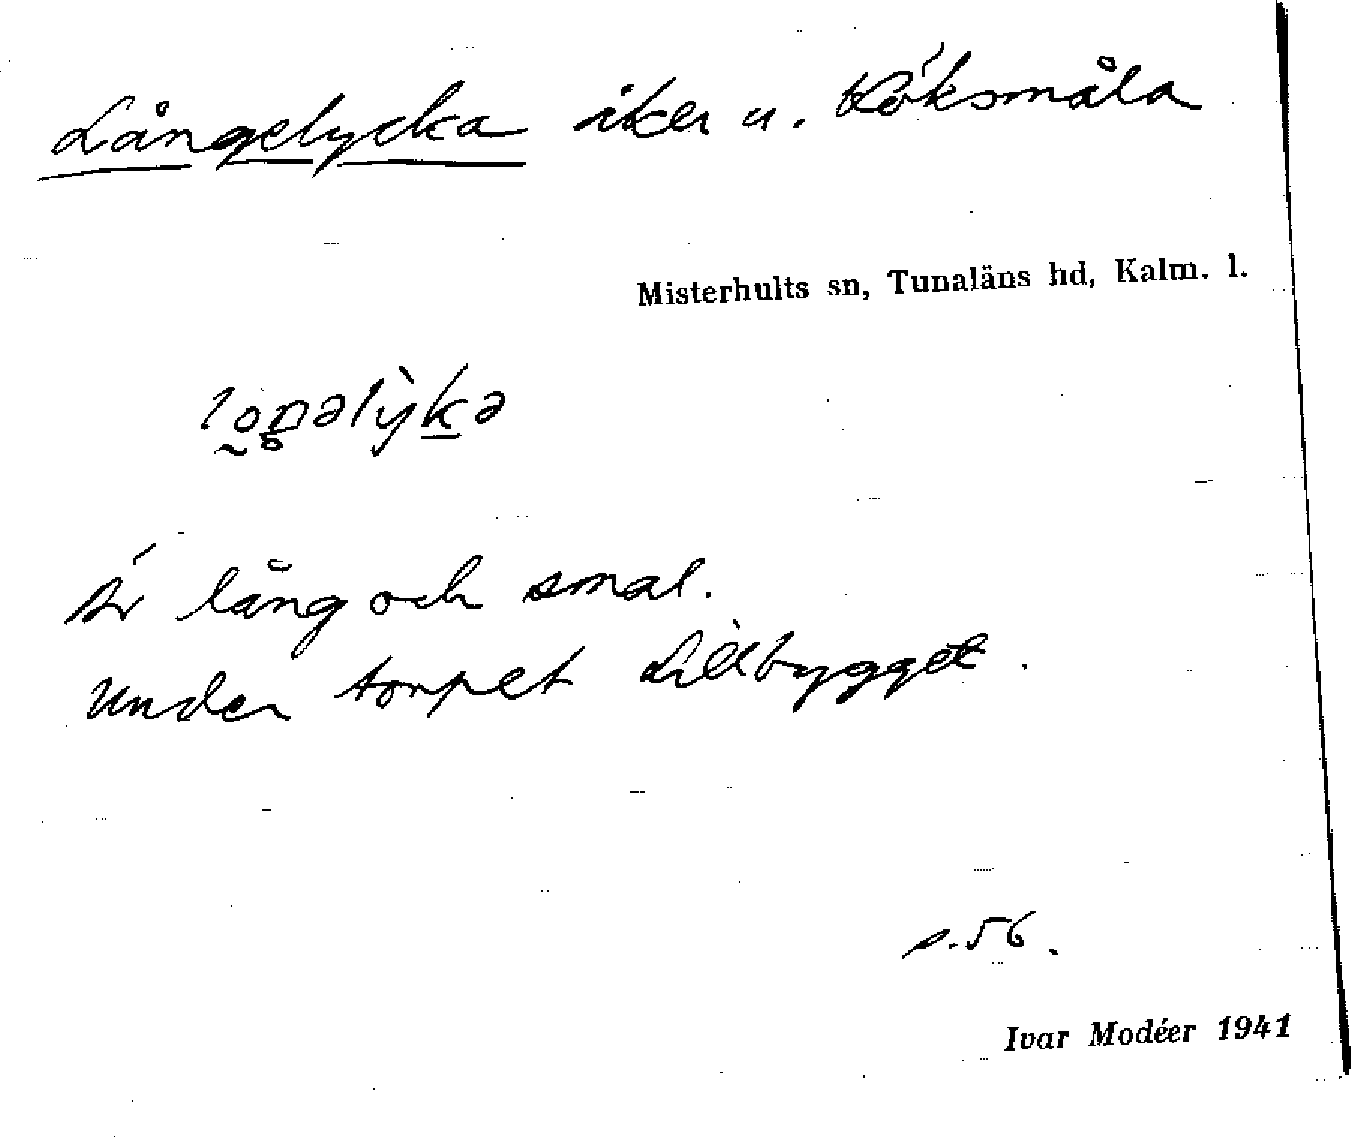 Långelycka åker u. Klöksmåla
Misterhults sn, Tunaläns hd, Kalm. l.
Är lång och smal.
Under torpet Lillbygget.
s. 56.
Ivar Modéer 1941